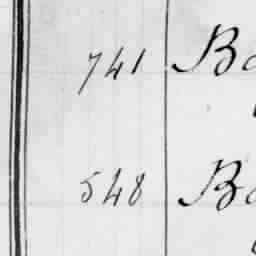 741 Ba
548 Ba